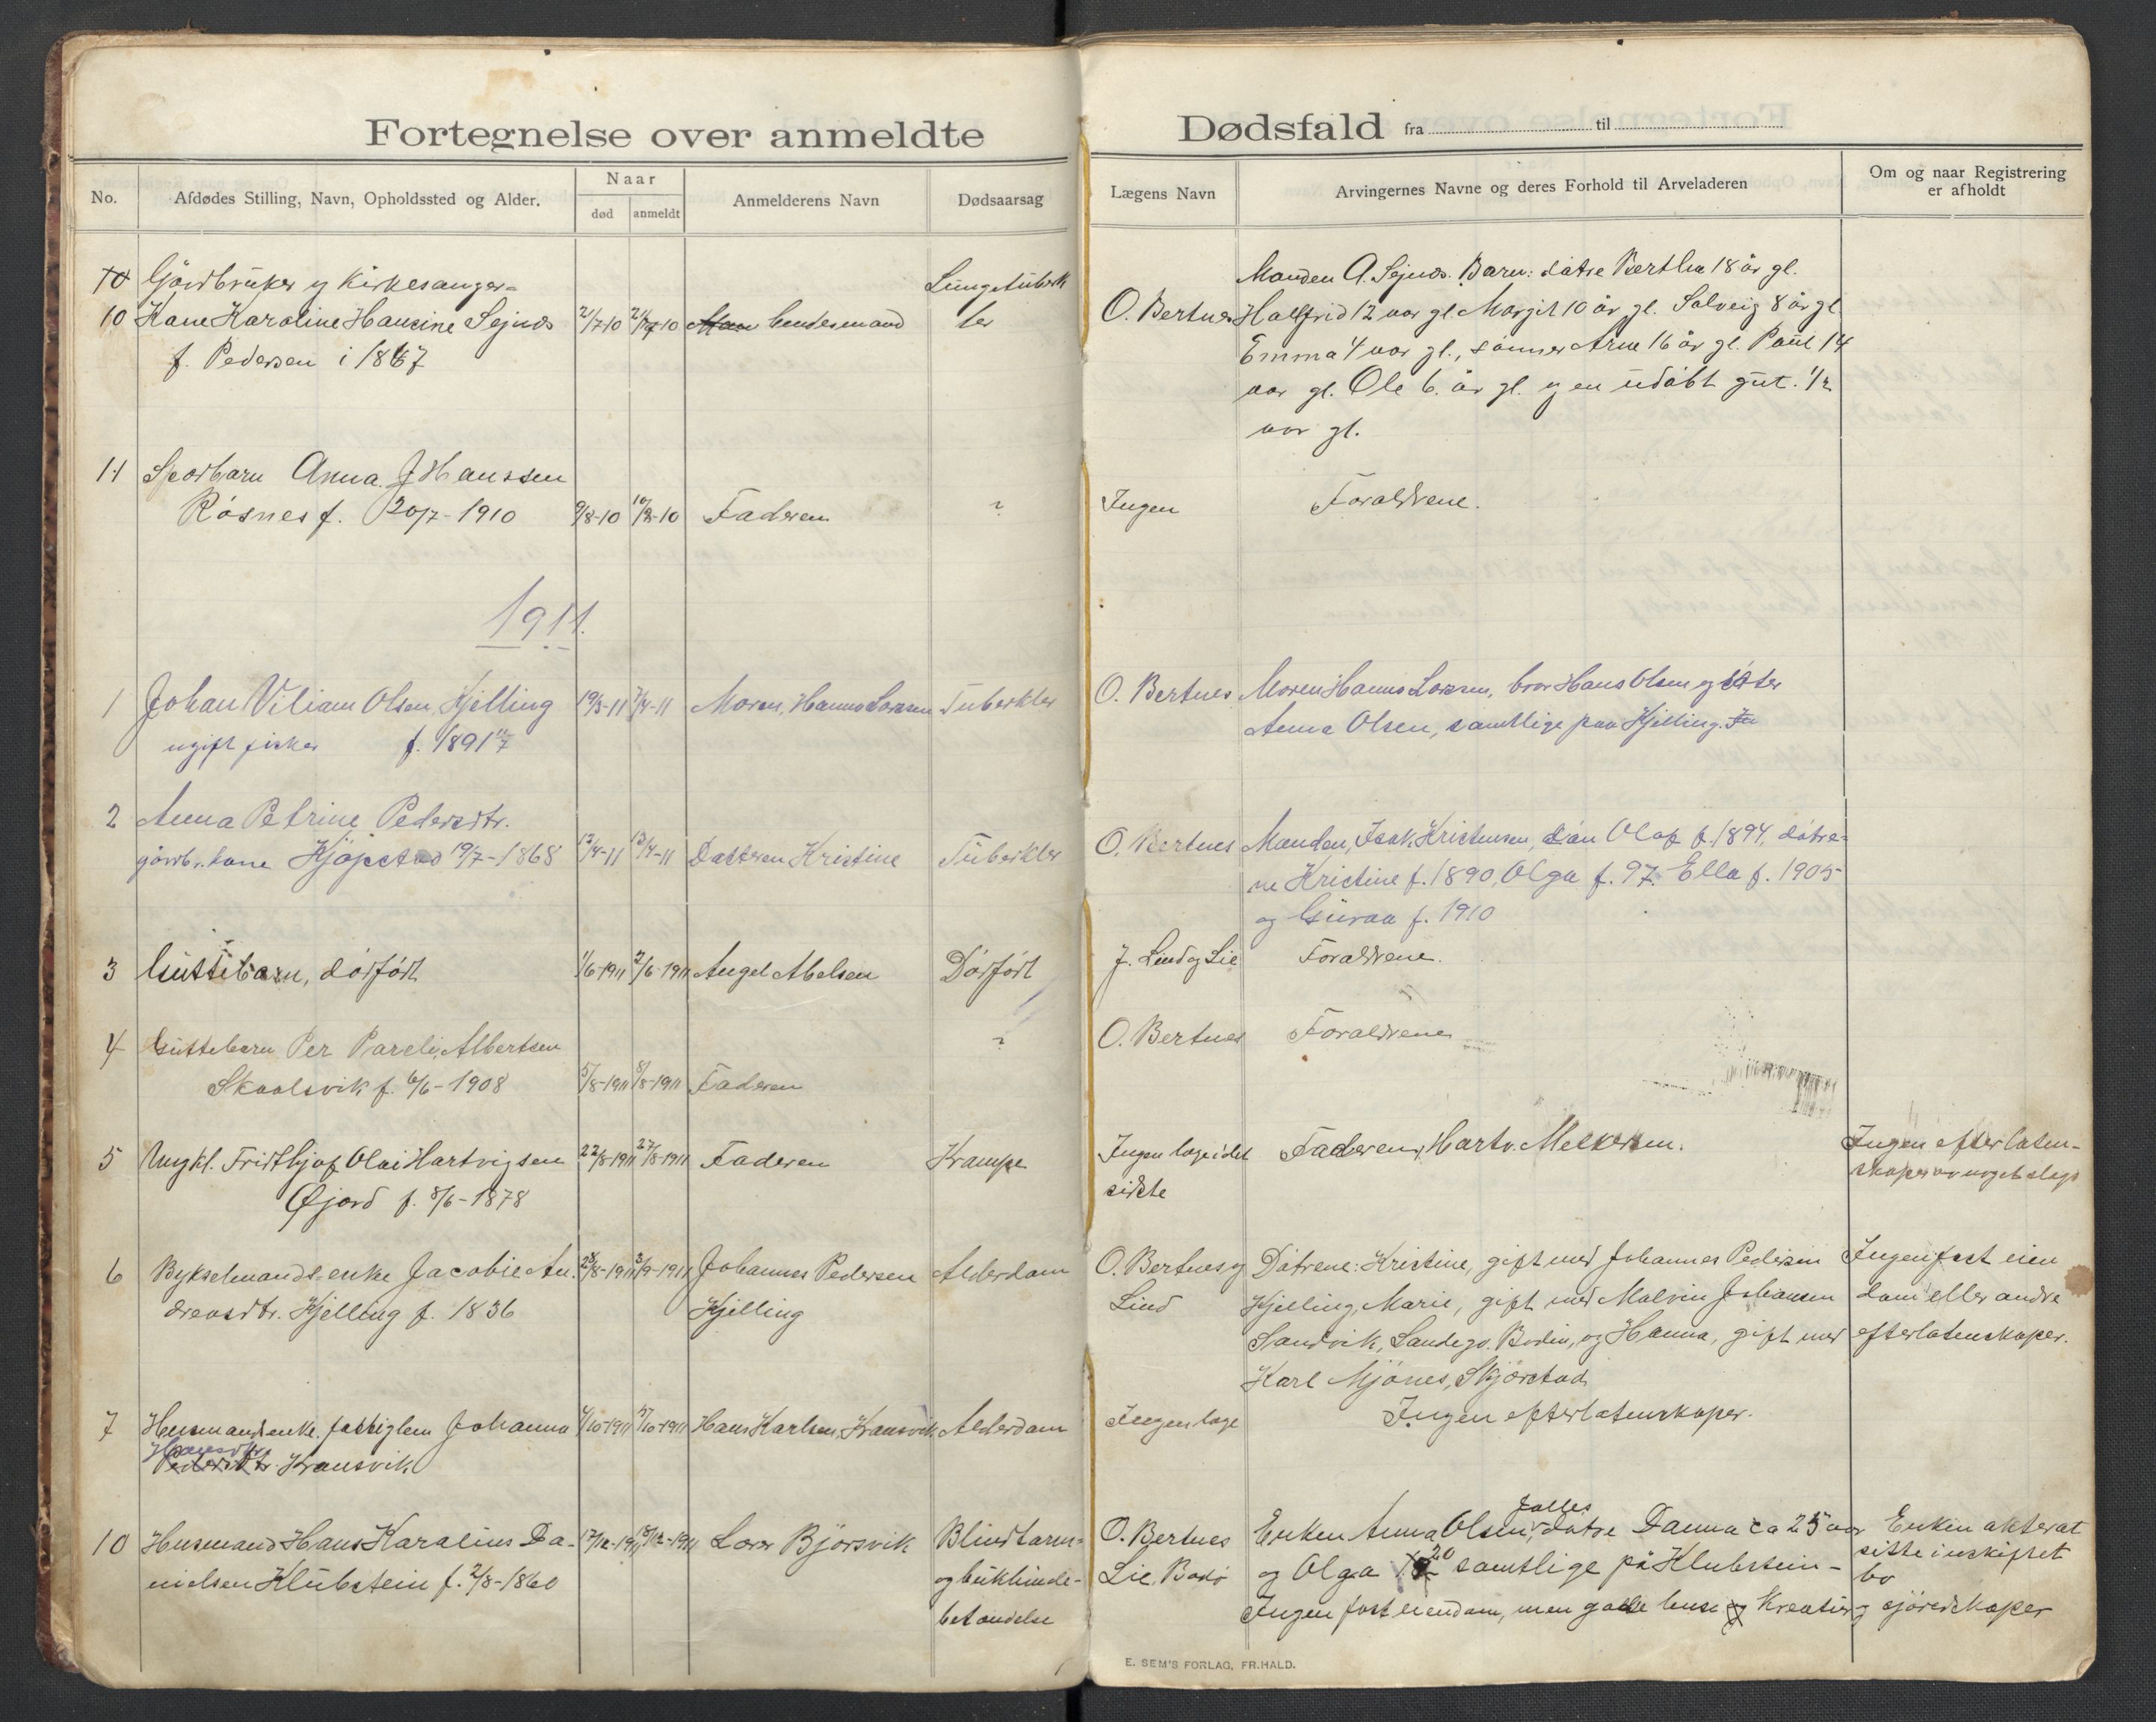 Fortegnelse over anmeldte Dødsfald fra til
No. Afdødes Stilling, Navn, Opholdssted og Alder. Naar død anmeldt Anmelderens Navn Dødsaarsag Lægens Navn Arvingernes Navne og deres Forhold til Arveladeren Om og naar Registrering er afholdt
Gårdbruker og Kirkesanger= Lungetuberk Manden A. Sejnæs. Barn: døtre Bertha 18 år gl.
10 Kane Karoline Hansine Sejnæs 21/7-10 hendes mand ler O. Bertnes Halfrid 12 aar gl. Margit 10 år gl. Solveig 8 år gl.
f. Pedersen i 1867 Emma 4 aar gl., sønner Arne 16 år gl. Paul 14
aar gl. Ole 6 år gl. og en udøbt gut. 1/2
aar gl.
11 Spædbarn Anna J Hanssen
Røsnes f. 20/7-1910 9/8-10 10/8-10 Faderen ? Ingen Forældrene.
1911.
1 Johan Viliam Olsen, Kjelling 19/3-11 7/4-11 Moren, Hanna Larsen Tuberkler O. Bertnes Moren Hanna Larsen, bror Hans Olsen og søster
ugift fisker f. 1891 11/7 Anna Olsen, samtlige paa Kjelling.
2 Anna Petrine Pedersdtr.
gårdbr. kone Kjøpstad 19/7-1868 12/4-11 13/4-11 Datteren Kristine Tuberkler O. Bertnes Manden, Isak Kristensen, søn Olaf f. 1894, døtre-
ne Kristine f. 1890, Olga f. 97. Ella f. 1905
og Guraa f. 1910
3 Guttebarn, dødfødt 1/6-1911 2/6-1911 Angel Abelsen Dødfødt J. Lind og Lie Forældrene.
4 Guttebarn Per Pareli Albertsen ? O. Bertnes Forældrene
Skaalsvik f. 6/6-1908 5/8-1911 8/8-1911 Faderen
5 Ungkl. Fridthjof Olai Hartvigsen 22/8-1911 27/8-1911 Faderen Krampe Ingen læge i det Faderen, Hartv. Melkersen. Ingen efterlaten-
Øjord f. 8/6-1878 sidste skaper av noget slags
6 Bykselmands-enke Jacobie An- 28/8-1911 3/9-1911 Johannes Pedersen Alderdom O. Bertnes og Døtrene: Kristine, gift med Johannes Pedersen Ingen fast eien
dreasdtr. Kjelling f. 1836 Kjelling Lind Kjelling, Marie, gift med Malvin Johansen dom eller andre
Sandvik, Landego. Bodin, og Hanna, gift med efterlatenskaper.
Karl Mjønes, Skjerstad
7 Husmandsenke, fattiglem Johanna 4/10-1911 5/10-1911 Hans Karlsen, Kransvik Alderdom Ingen læge Ingen efterlatenskaper.
Hansdtr.
Pedersdtr. Kransvik
10 Husmand Hans Karalius Da- 17/12-1911 18/12-1911 Lorer Bjørsvik Blindtarm- O. Bertnes Enken Anna Olsen, fælles døtre Danna ca 25 aar Enken akter at
nielsen Klubstein f. 2/8-1860 og bukhinde- Lie, Bodø og Olga 20 samtlige på Klubstein- sitte i uskiftet
betændelse bo
Ingen fast eiendom, men gode huse og Kreatur og sjøredskaper
E. SEM'S FORLAG, FR.HALD.